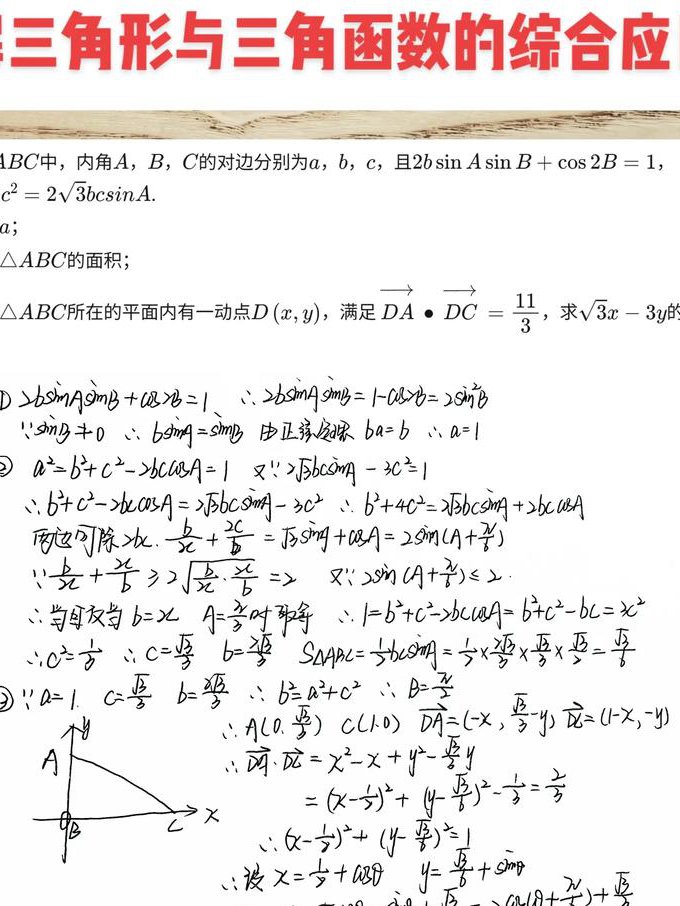 三角形与三角函数的综合应
ABC中，内角A，B，C的对边分别为a，b，c，且2b sin A sin B + cos 2B = 1，
c² = 2√3bcsinA.
a；
△ABC的面积；
△ABC所在的平面内有一动点D (x, y)，满足 DA • DC = 11/3，求√3x − 3y的
① 2bsinAsinB+cos2B=1 ∴2bsinAsinB=1-cos2B=2sin²B
∵sinB≠0 ∴ bsinA=sinB 由正弦定理 ba=b ∴a=1
② a²=b²+c²-2bccosA=1 又∵2√3bcsinA-3c²=1
∴b²+c²-2bccosA=2√3bcsinA-3c² ∴ b²+4c²=2√3bcsinA+2bccosA
两边同除2bc. b/2c + 2c/b = √3sinA+cosA=2sin(A+π/6)
∵ b/2c + 2c/b ≥ 2√(b/2c · 2c/b) =2 又∵ 2sin(A+π/6)≤2.
∴当且仅当 b=2c A=π/3时取等 ∴1=b²+c²-2bccosA=b²+c²-bc=3c²
∴c²=1/3 ∴c=√3/3 b=2√3/3 S△ABC=1/2bcsinA=1/2×2√3/3×√3/3×√3/2=√3/6
③ ∵a=1. c=√3/3 b=2√3/3 ∴b²=a²+c² ∴B=π/2
∴A(0,√3/3) C(1,0) DA=(-x, √3/3-y) DC=(1-x,-y)
y
A
B
C
x
∴DA·DC=x²-x+y²-√3/3y
=(x-1/2)²+(y-√3/6)²-1/3=2/3
∴(x-1/2)²+(y-√3/6)²=1
∴设 x=1/2+cosθ y=√3/6+sinθ